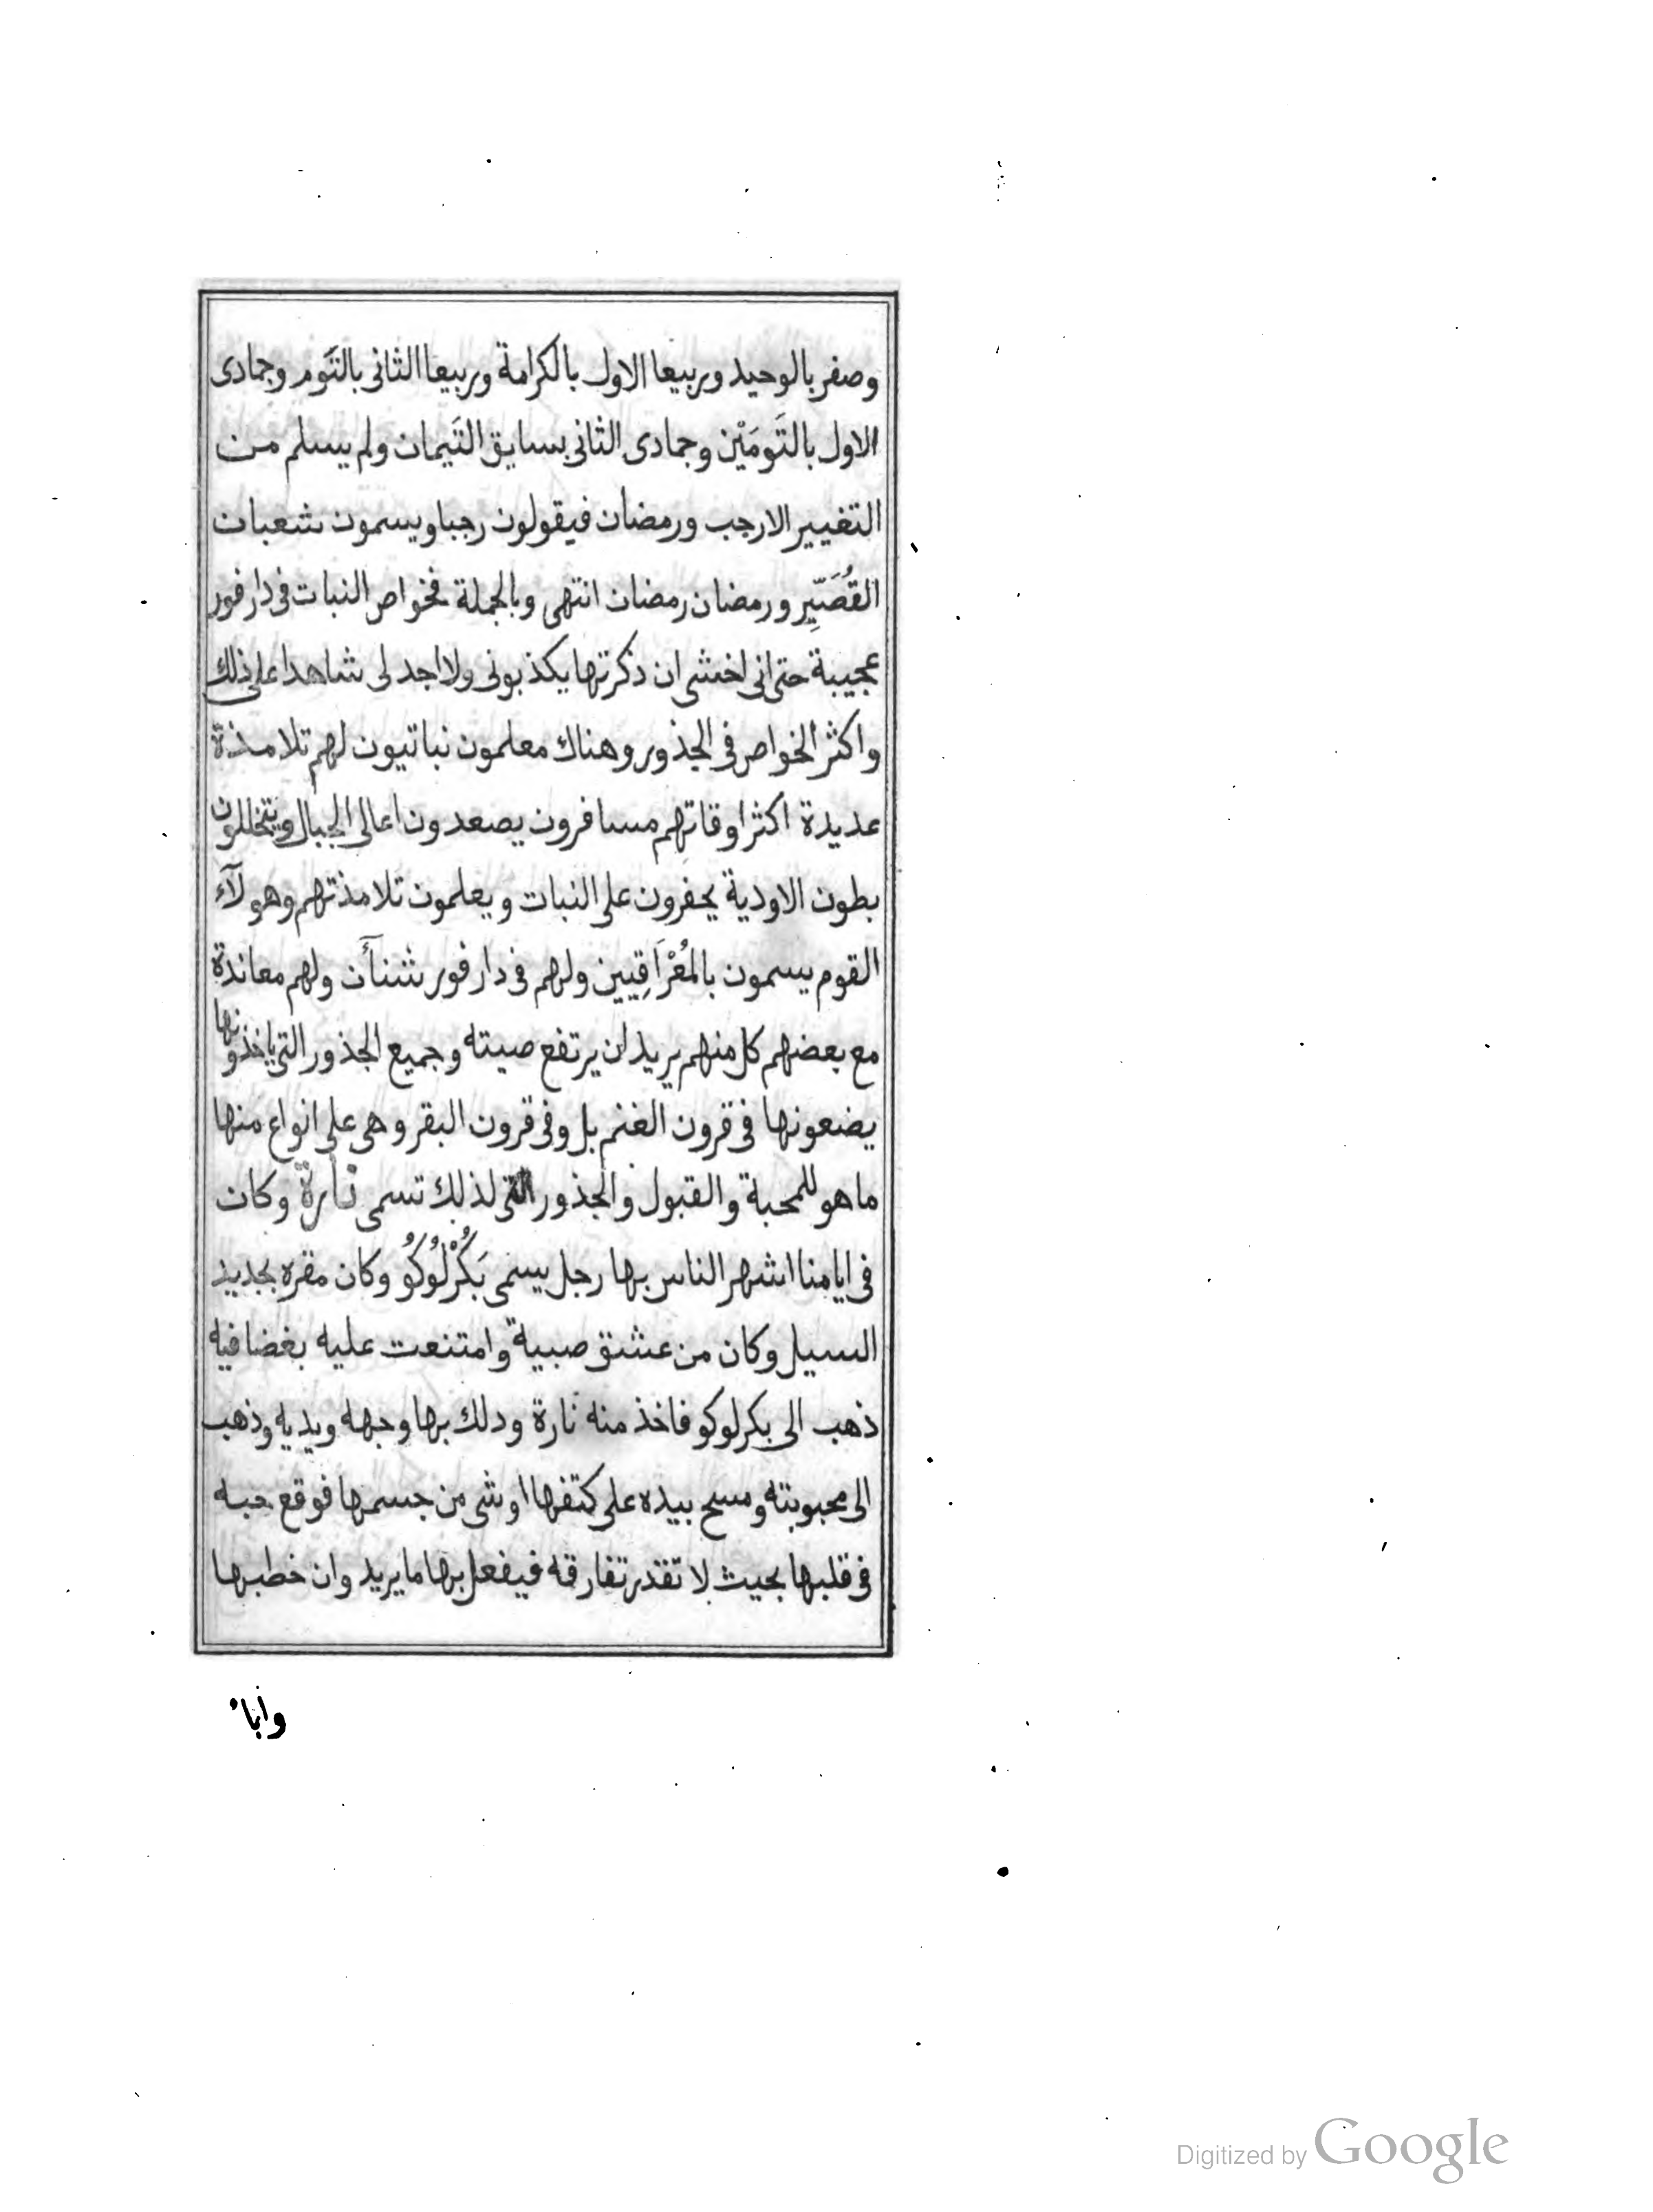 وصفر بالوحيد وربيعا الاول بالكرامة وربيعا الثانى بالتَوم وجمادى
الاول بالتَومَيْن وجمادى الثانى بسايق التَيمان ولم يسلم من
التغيير الا رجب ورمضان فيقولون رجبا ويسمون شعبان
القُصَيِّر ورمضان رمضان انتهى وبالجملة فخواص النبات فى دار فور
عجيبة حتى انى اخشى ان ذكرتها يكذبونى ولا اجد لى شاهدا على ذلك
واكثر الخواص فى الجذور وهناك معلمون نباتيون لهم تلامذة
عديدة اكثر اوقاتهم مسافرون يصعدون اعالى الجبال ويتخللون
بطون الاودية يحفرون على النبات ويعلمون تلامذتهم وهولآء
القوم يسمون بالمُعْرَاقِيين ولهم فى دار فور شنأن ولهم معاندة
مع بعضهم كل منهم يريد ان يرتفع صيته وجميع الجذور التى ياخذونها
يضعونها فى قرون الغنم بل وفى قرون البقر وهى على انواع منها
ما هو للمحبة والقبول والجذور التى لذلك تسمى نارة وكان
فى ايامنا اشهر الناس بها رجل يسمى بَكُرْلُوكُو وكان مقره بجديد
السيل وكان من عشق صبية وامتنعت عليه بغضا فيه
ذهب الى بكرلوكو فاخذ منه نارة ودلك بها وجهه ويديه وذهب
الى محبوبته ومسح بيده على كتفها او شى من جسمها فوقع حبه
فى قلبها بحيث لا تقدر تفارقه فيفعل بها ما يريد وان خطبها
وابا
Digitized by Google